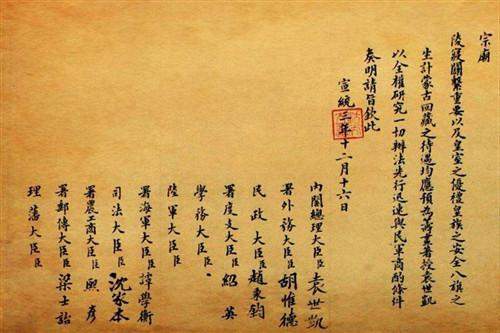 宗廟
陵寢關繫重要以及皇室之優禮皇族之安全八旗之
生計蒙古回藏之待遇均應預為籌畫著授袁世凱
以全權研究一切辦法先行迅速與民軍商酌條件
奏明請旨欽此
宣統三年十二月十六日
內閣總理大臣臣袁世凱
署外務大臣臣胡惟德
民政大臣臣趙秉鈞
署度支大臣臣紹英
學務大臣臣
陸軍大臣臣
署海軍大臣臣譚學衡
司法大臣臣沈家本
署農工商大臣臣熙彥
署郵傳大臣臣梁士詒
理藩大臣臣